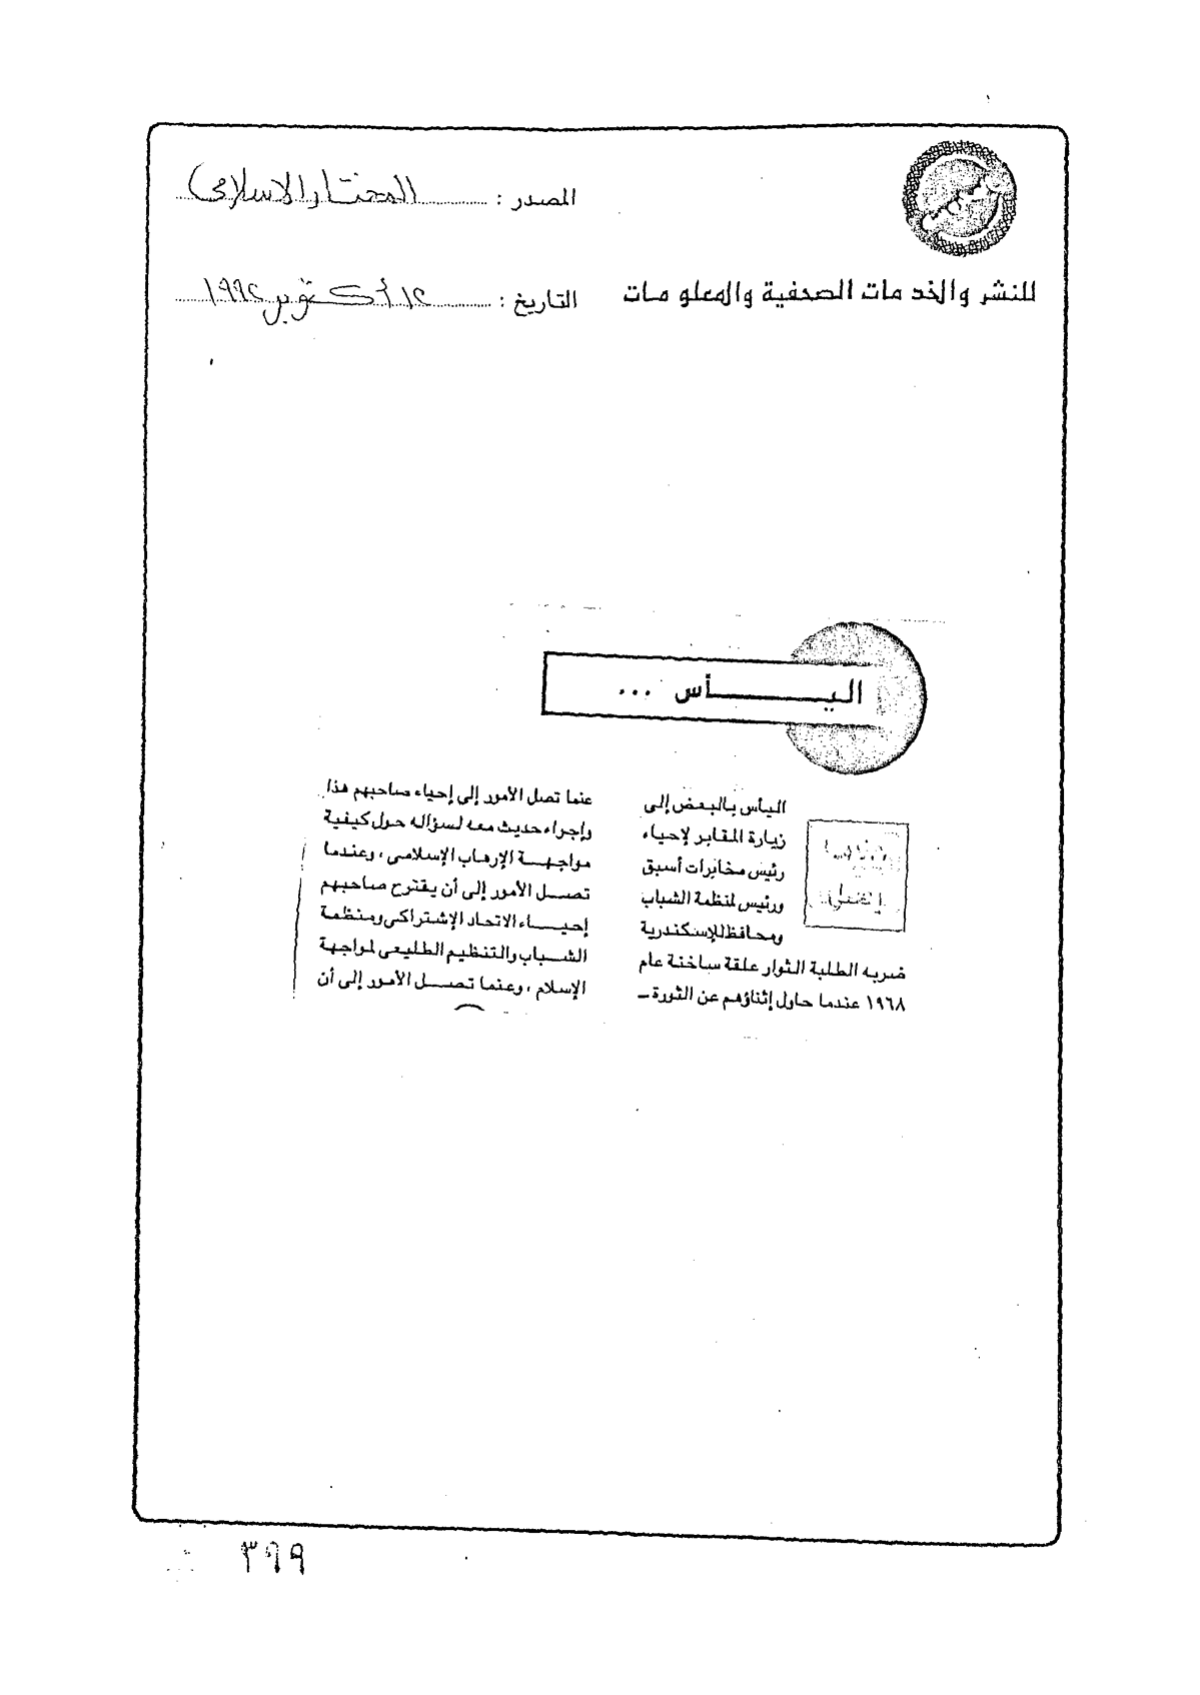 المصدر : المختار الاسلامى
للنشر والخد مات الصحفية والمعلو مات
التاريخ : ١٢ أكتوبر ١٩٩٢
اليأس ...
اليأس بالبعض إلى
زيارة المقابر لإحياء
رئيس مخابرات أسبق
ورئيس لمنظمة الشباب
ومحافظ للإسكندرية
ضربه الطلبة الثوار علقة ساخنة عام
١٩٦٨ عندما حاول إثناؤهم عن الثورة –
عنما تصل الأمور إلى إحياء صاحبهم هذا
وإجراء حديث معه لسؤاله حول كيفية
مواجهة الإرهاب الإسلامى ، وعندما
تصل الأمور إلى أن يقترح صاحبهم
إحياء الاتحاد الإشتراكى ومنظمة
الشباب والتنظيم الطليعى لمواجهة
الإسلام ، وعنما تصل الأمور إلى أن
٣٩٩